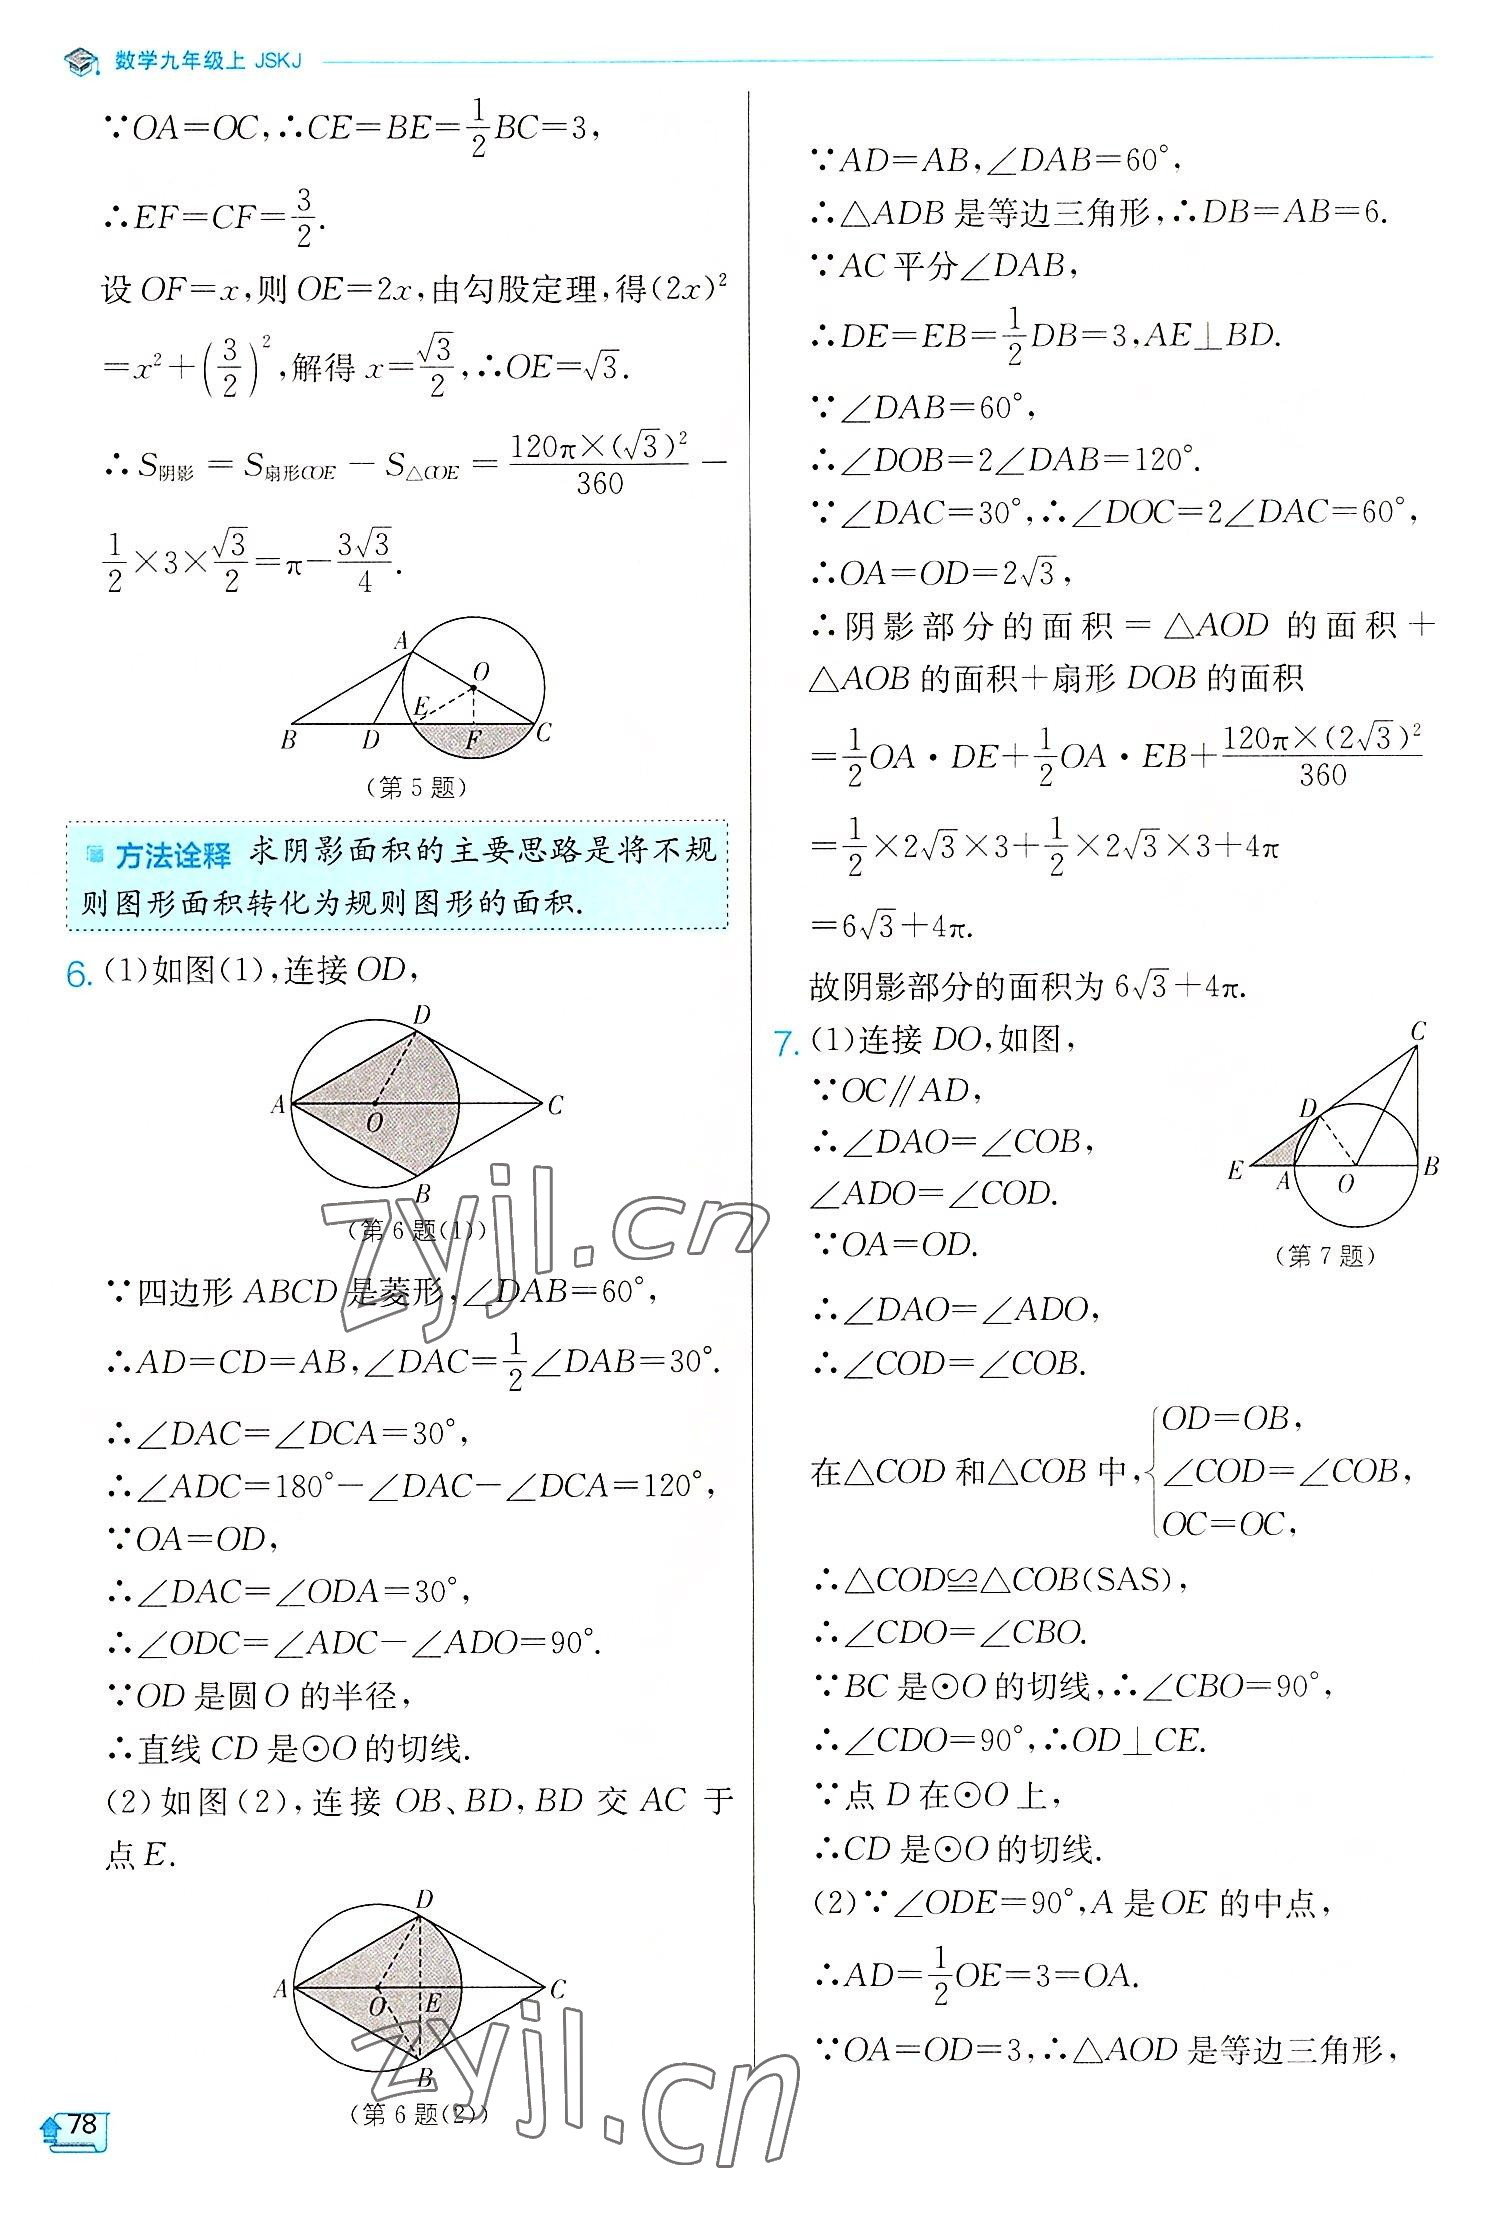 数学九年级上 JSKJ
∵OA=OC,∴CE=BE=1/2BC=3,
∴EF=CF=3/2.
设OF=x,则OE=2x,由勾股定理,得(2x)²
=x²+(3/2)²,解得x=√3/2,∴OE=√3.
∴S阴影=S扇形COE-S△COE=120π×(√3)²/360-
1/2×3×√3/2=π-3√3/4.
A
O
E
B D F C
(第5题)
方法诠释 求阴影面积的主要思路是将不规
则图形面积转化为规则图形的面积.
6. (1)如图(1),连接OD,
D
A O C
B
(第6题(1))
∵四边形ABCD是菱形,∠DAB=60°,
∴AD=CD=AB,∠DAC=1/2∠DAB=30°.
∴∠DAC=∠DCA=30°,
∴∠ADC=180°-∠DAC-∠DCA=120°,
∵OA=OD,
∴∠DAC=∠ODA=30°,
∴∠ODC=∠ADC-∠ADO=90°.
∵OD是圆O的半径,
∴直线CD是⊙O的切线.
(2)如图(2),连接OB、BD,BD交AC于
点E.
D
A O E C
B
(第6题(2))
78
∵AD=AB,∠DAB=60°,
∴△ADB是等边三角形,∴DB=AB=6.
∵AC平分∠DAB,
∴DE=EB=1/2DB=3,AE⊥BD.
∵∠DAB=60°,
∴∠DOB=2∠DAB=120°.
∵∠DAC=30°,∴∠DOC=2∠DAC=60°,
∴OA=OD=2√3,
∴阴影部分的面积=△AOD的面积+
△AOB的面积+扇形DOB的面积
=1/2OA·DE+1/2OA·EB+120π×(2√3)²/360
=1/2×2√3×3+1/2×2√3×3+4π
=6√3+4π.
故阴影部分的面积为6√3+4π.
7. (1)连接DO,如图,
∵OC∥AD,
∴∠DAO=∠COB,
∠ADO=∠COD.
∵OA=OD.
∴∠DAO=∠ADO,
∴∠COD=∠COB.
C
D
E A O B
(第7题)
在△COD和△COB中,{OD=OB,
∠COD=∠COB,
OC=OC,
∴△COD≌△COB(SAS),
∴∠CDO=∠CBO.
∵BC是⊙O的切线,∴∠CBO=90°,
∴∠CDO=90°,∴OD⊥CE.
∵点D在⊙O上,
∴CD是⊙O的切线.
(2)∵∠ODE=90°,A是OE的中点,
∴AD=1/2OE=3=OA.
∵OA=OD=3,∴△AOD是等边三角形,
zyjl.cn
zyjl.cn